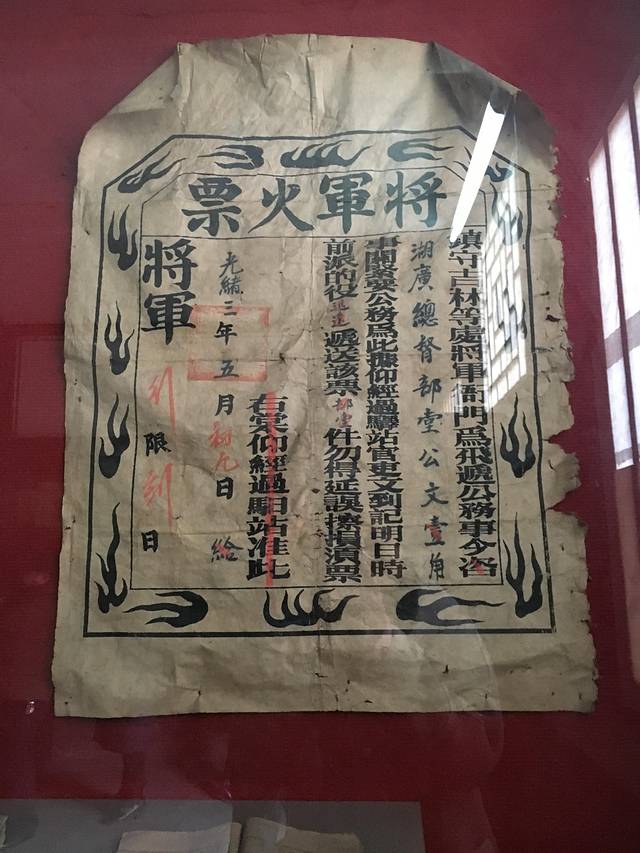 將軍火票
鎮守吉林等處將軍衙門為飛遞公務事今咨
湖廣總督部堂公文壹角
事關緊要公務為此票仰經過驛站官吏文到記明日時
前派的役迅速遞送該票部堂件勿得延誤擦損漬票
右票仰經過驛站准此
光緒三年五月初九日 給
將軍 限到日